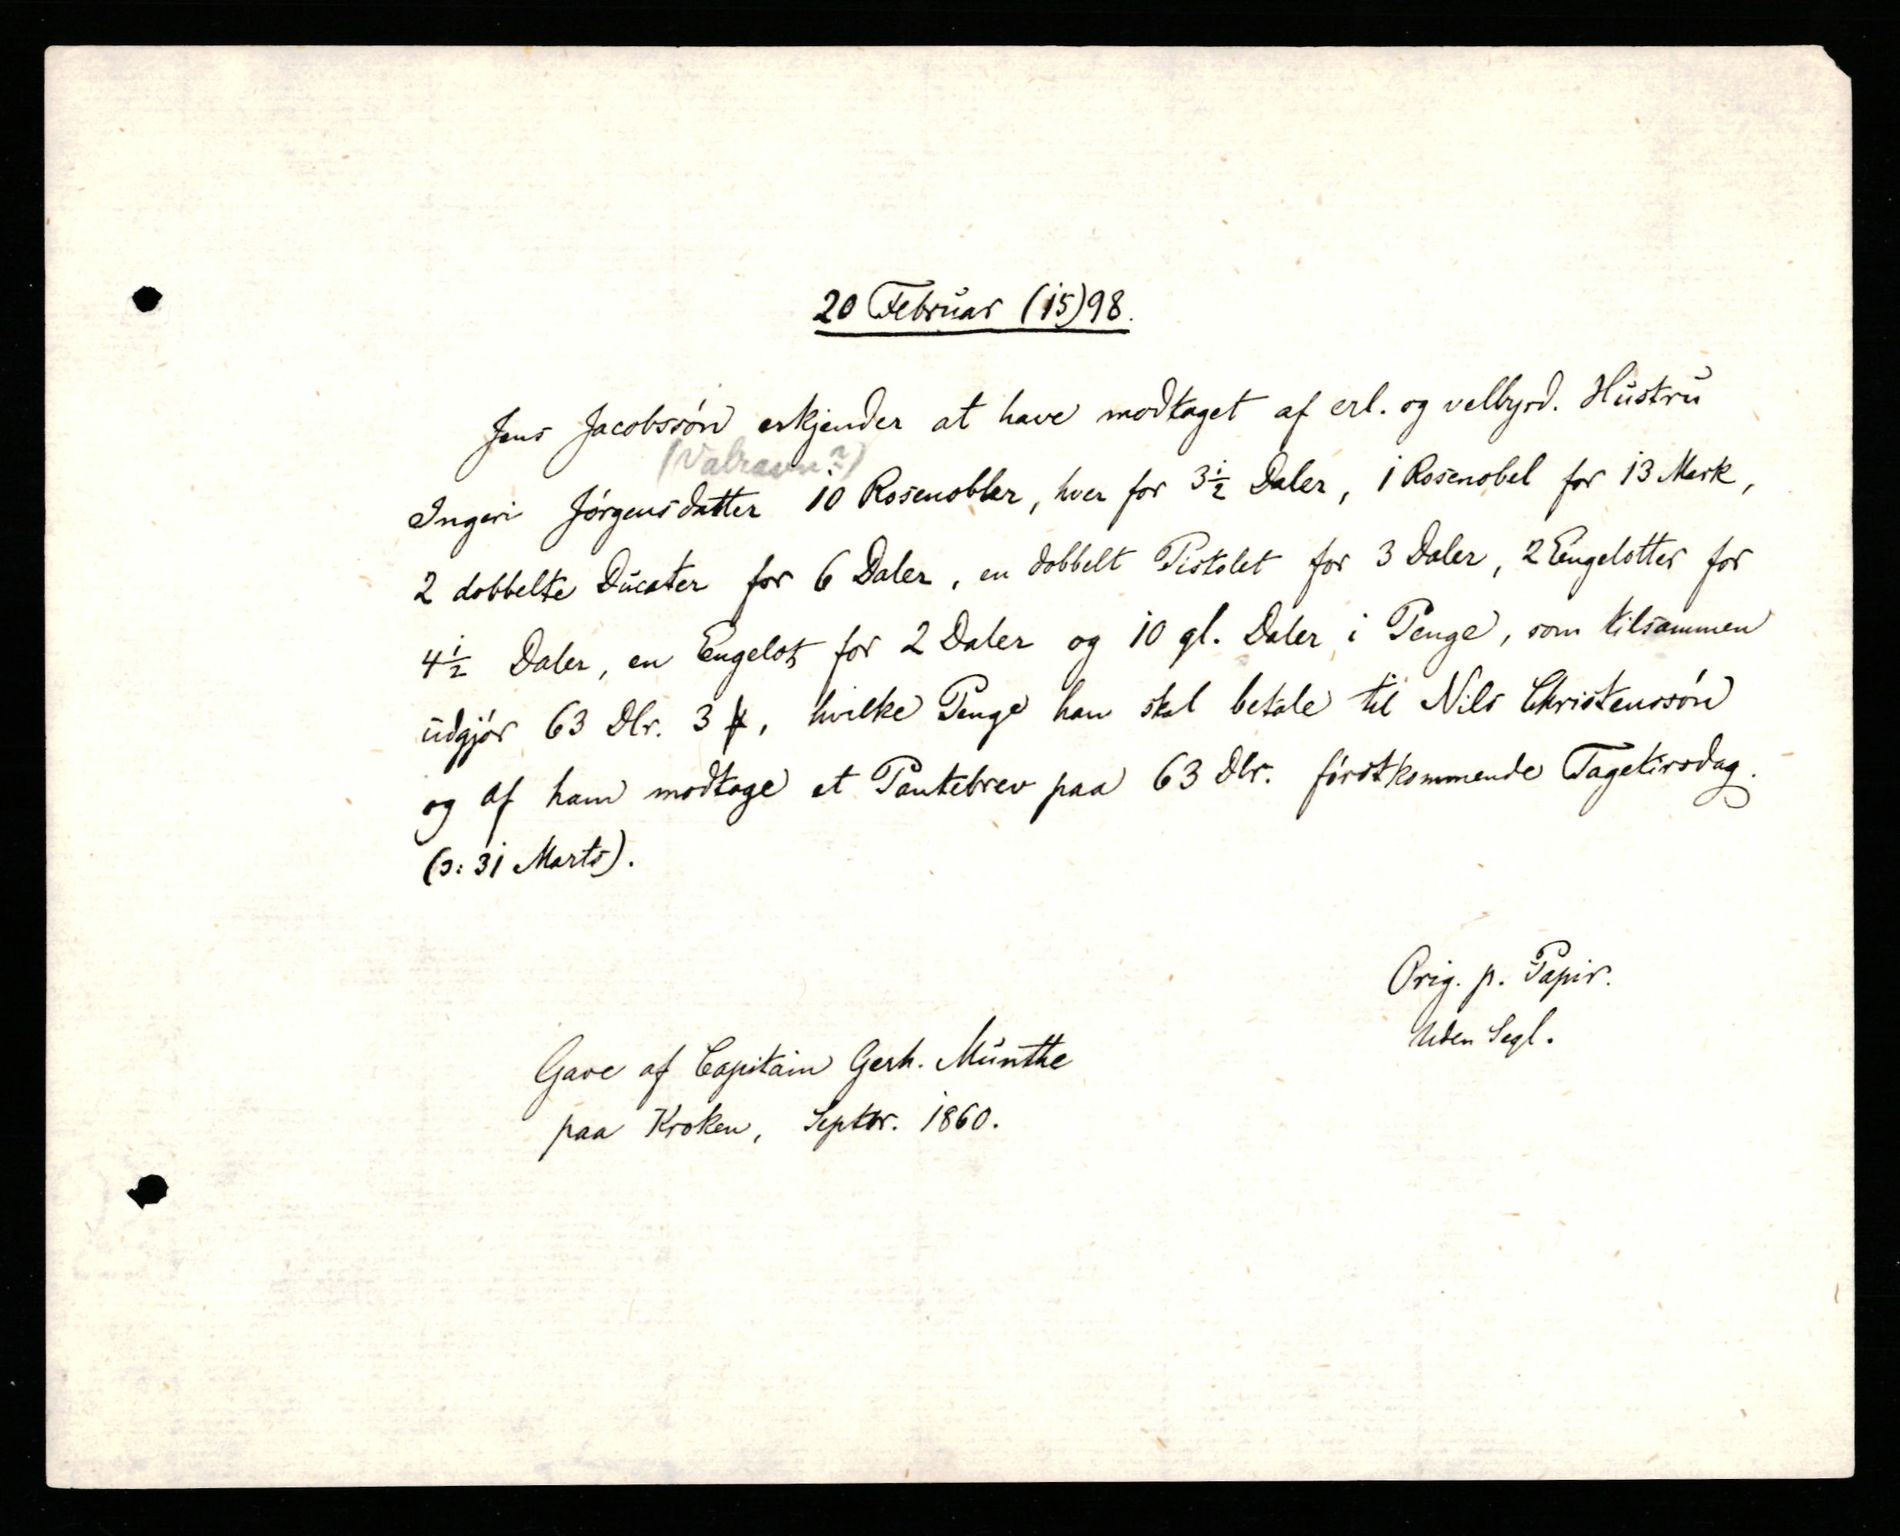 20 Februar (15)98.
Jens Jacobssøn erkjender at have modtaget af erl. og velbyrd. Hustru
(Valravn?)
Ingeri Jørgensdatter 10 Rosenobler, hver for 3½ Daler, 1 Rosenobel for 13 Mark,
2 dobbelte Ducater for 6 Daler, en dobbelt Pistolet for 3 Daler, 2 Engelotter for
4½ Daler, en Engelot for 2 Daler og 10 gl. Daler i Penge, som tilsammen
udgjør 63 Dlr. 3 ꝟ, hvilke Penge han skal betale til Nils Christenssøn
og af ham modtage et Pantebrev paa 63 Dlr. førstkommende Fagetirsdag.
(ɔ: 31 Marts).
Orig. p. Papir.
Uden Segl.
Gave af Capitain Gerh. Munthe
paa Kroken, Septbr. 1860.